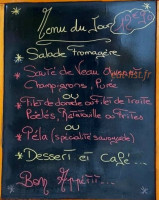 Menu du Jour
* Salade Fromagère
* Sauté de Veau
Champignons, Purée
ou
* Filet de dorade ou Filet de truite
Poêlés, Ratatouille ou Frites
ou
* Péla (spécialité savoyarde)
* Dessert et Café...
Bon Appétit...